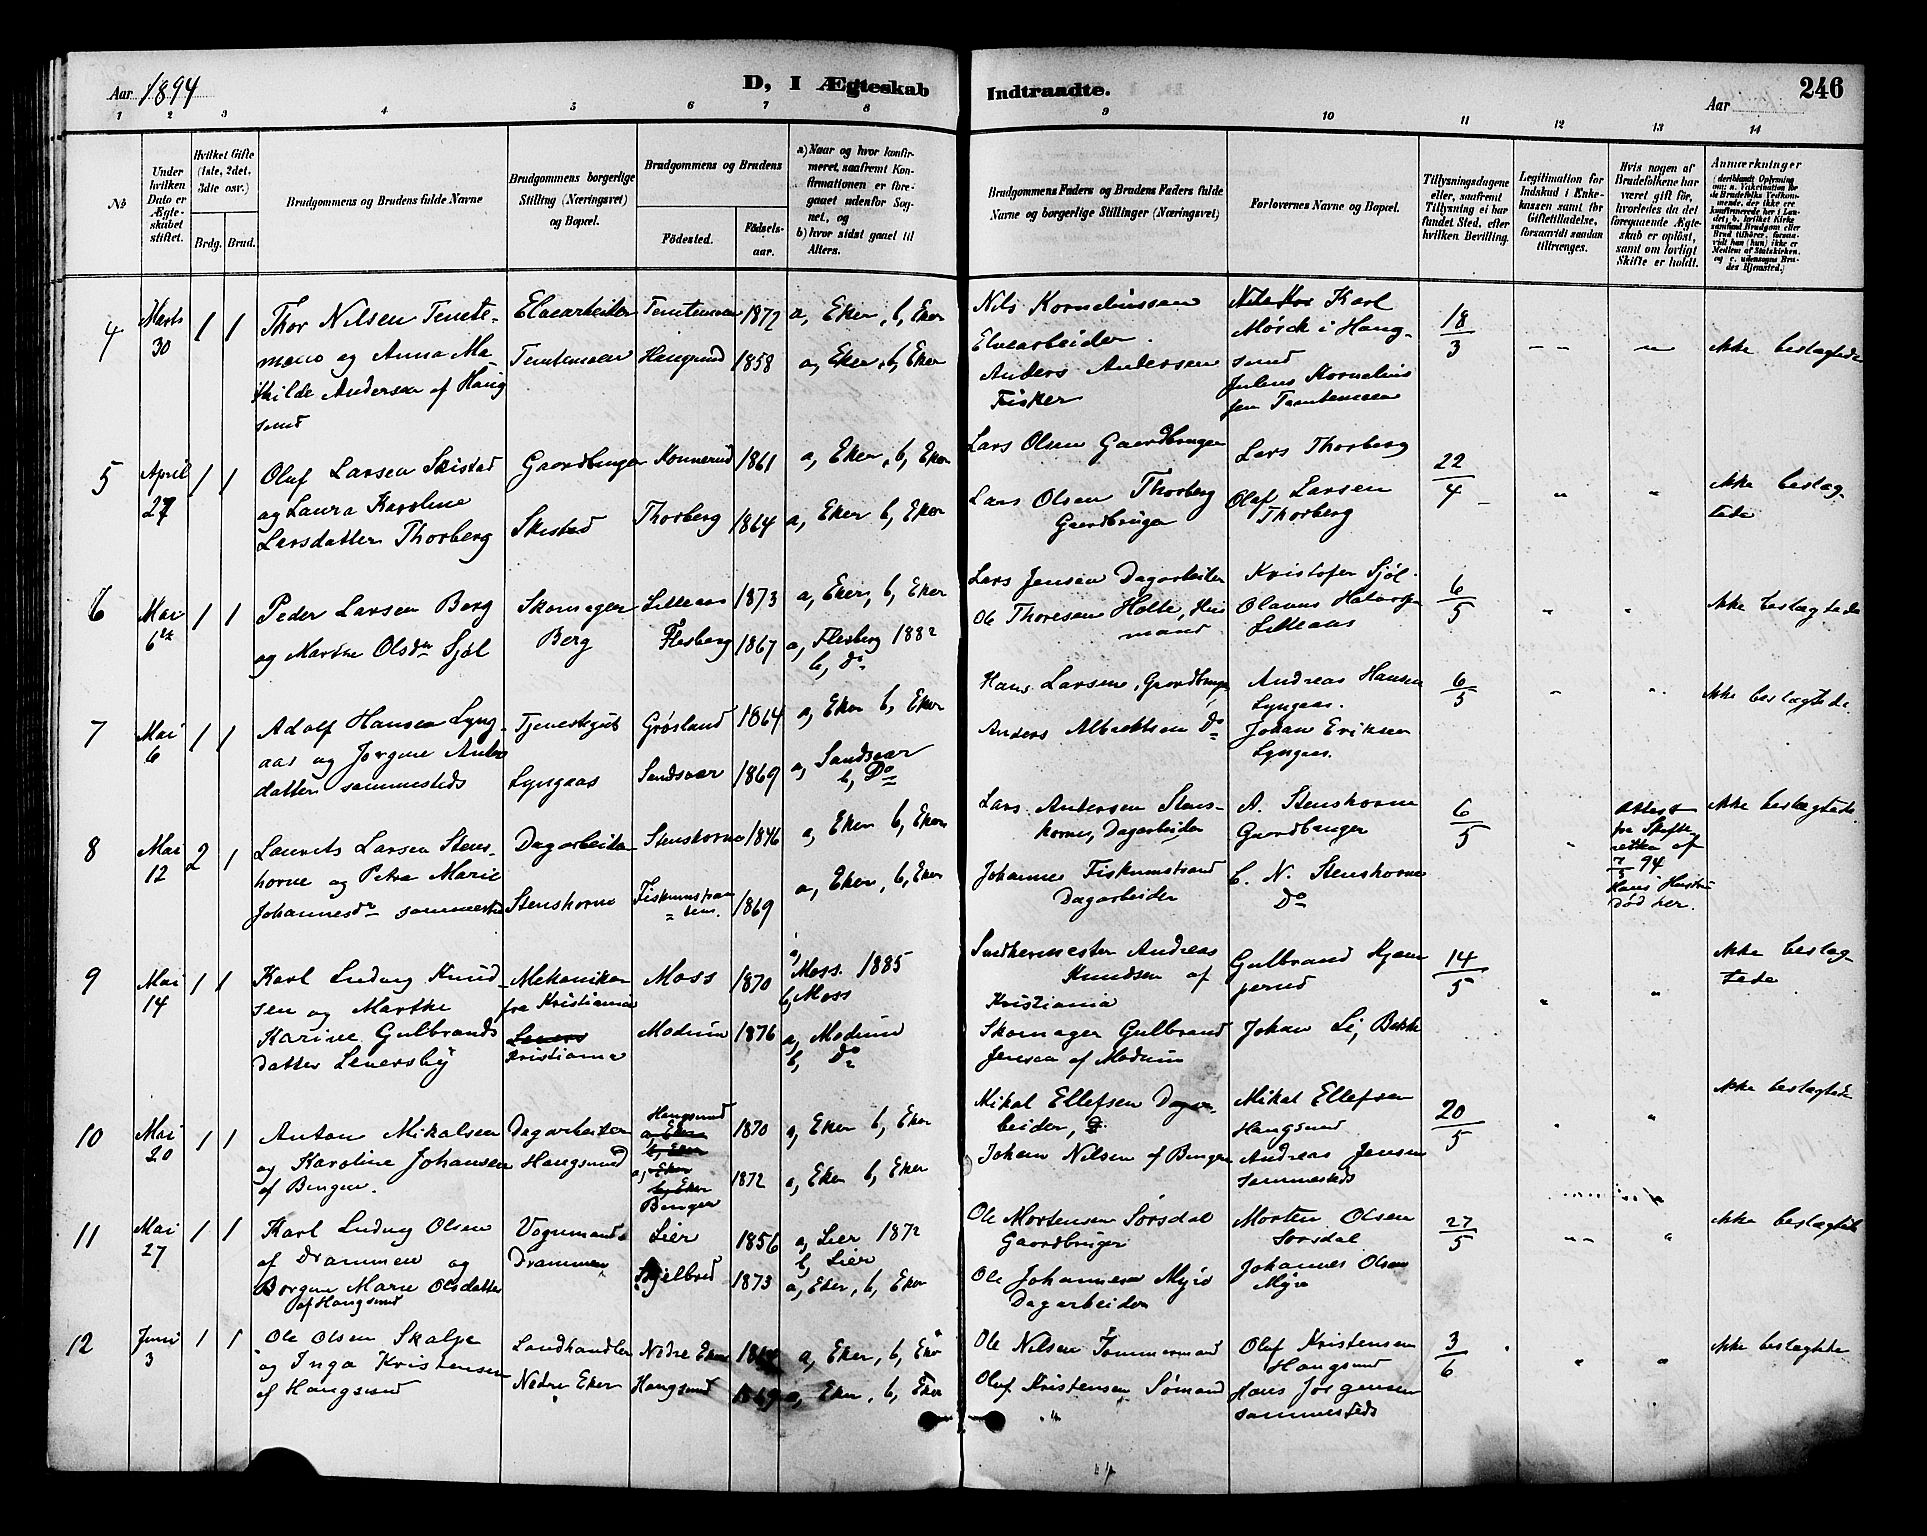 Aar 1894
D, I Ægteskab
Indtraadte.
Aar
246
1 2 3 4 5 6 7 8 9 10 11 12 13 14
No
Under hvilken Dato er Ægteskabet stiftet.
Hvilket Gifte (1ste, 2det, 3die osv.)
Brdg. Brud.
Brudgommens og Brudens fulde Navne
Brudgommens borgerlige Stilling (Næringsvei) og Bopæl.
Brudgommens og Brudens
Fødested.
Fødselsaar.
a) Naar og hvor konfirmeret, saafremt Konfirmationen er foregaaet udenfor Sognet, og
b) hvor sidst gaaet til Alters.
Brudgommens Faders og Brudens Faders fulde Navne og borgerlige Stillinger (Næringsvei)
Forlovernes Navne og Bopæl.
Tillysningsdagene eller, saafremt Tillysning ei har fundet Sted, efter hvilken Bevilling.
Legitimation for Indskud i Enkekassen samt for Giftetilladelse, forsaavidt saadan tiltrænges.
Hvis nogen af Brudefolkene har været gift før, hvorledes da det foregaaende Ægteskab er opløst, samt om lovligt Skifte er holdt.
Anmærkninger
4 Marts 30 1 1
Thor Nilsen Temte-
moen og Anna Ma-
thilde Andersen af Haug
sund
Elvearbeider
Temtemoen
Temtemoen 1872 a, Eker, b, Eker
Haugsund 1858 a, Eker, b, Eker
Nils Korneliussen
Elvearbeider.
Anders Andersen
Fisker
Karl
Mørck i Haug-
sund
Julius Kornelius
sen Temtemoen
18/3
Ikke beslægtede
5 April 27 1 1
Oluf Larsen Skistad
og Laura Karoline
Larsdatter Thorberg
Gaardbruger
Skistad
Konnerud 1861 a, Eker, b, Eker
Thorberg 1864 a, Eker b, Eker
Lars Olsen Gaardbruger
Lars Olsen Thorberg
Gaardbruger
Lars Thorberg
Olaf Larsen
Thorberg
22/4
Ikke beslæg-
tede
6 Mai 6te 1 1
Peder Larsen Berg
og Marthe Olsdr Sjøl
Skomager
Berg
Lilleaas 1873 a, Eker, b, Eker
Flesberg 1867 a, Flesberg 1882
b, Do
Lars Jensen Dagarbeider
Ole Thoresen Holte, Hus
mand
Kristofer Sjøl.
Olaves
Lilleaas
6/5
Ikke beslægtede
7 Mai 6 1 1
Adolf Hansen Lyng-
aas og Jørgine Anders
datter sammesteds
Tjenestegut
Lyngaas
Grøsland 1864 a, Eker b, Eker
Sandsvær 1869 a, Sandsvær
b, Do
Hans Larsen, Gaardbruger
Anders Albrektsen Do
Andreas Hansen
Lyngaas.
Johan Eriksen
Lyngaas.
6/5
Ikke beslægtede.
8 Mai 12 2 1
Laurits Larsen Stens-
horne og Petra Marie
Johannesdr sammesteds
Dagarbeider
Stenshorne
Stenshorne 1846 a, Eker b, Eker
Fiskumstran
den. 1869 a, Eker, b, Eker
Lars Andersen Stens-
horne, Dagarbeider
Johannes Fiskumstrand
Dagarbeider
A. Stenshorne
Gaardbruger
C. N. Stenshorne
Do
6/5
Attest
fra Skifte
retten af
7/5 94
Hans Hustru
død her.
Ikke beslægtede.
9 Mai 14 1 1
Karl Ludvig Knud
sen og Marthe
Karine Gulbrands
datter Lenersby
Mekaniker
fra Kristiania
Kristiania
Moss 1870 a, Moss 1885
b, Moss
Modum 1876 a, Modum
b, Do
Andreas
Knudsen af
Kristiania
Skomager Gulbrand
Jensen af Modum
Gulbrand Hjem
perud
Johan Li, Bakke
14/5
Ikke beslæg-
tede
10 Mai 20 1 1
Anton Mikalsen
og Karoline Johansen
af Bingen.
Dagarbeider
Haugsund
Haugsund
a, Eker
b, Eker
a, Eker
b, Eker
Bingen
1870 a, Eker b, Eker
1872 a, Eker b, Eker
Mikal Ellefsen Dagar-
beider,
Johan Nilsen af Bingen
Mikal Ellefsen
Haugsund
Andreas Jensen
sammesteds
20/5
Ikke beslægtede
11 Mai 27 1 1
Karl Ludvig Olsen
af Drammen og
Borgine Marie Olsdatter
af Haugsund
Vognmand
Drammen
Lier 1856 a, Lier 1872
b, Lier
Skjelbred 1873 a, Eker, b, Eker
Ole Mortensen Sørsdal
Gaardbruger
Ole Johannesen Myro
Dagarbeider
Morten Olsen
Sørsdal
Johannes Olsen
Myro
27/5
Ikke beslægtede
12 Juni 3 1 1
Ole Olsen Skalpe
og Inga Kristensen
af Haugsund
Landhandler
Nedre Eker
Nedre Eker a, Eker, b, Eker
Haugsund 1869 a, Eker, b, Eker
Ole Nilsen Tømmermand
Oluf Kristensen Sømand
Oluf Kristensen
Haugsund
Hans Jørgensen
sammesteds
3/6
Ikke beslægtede